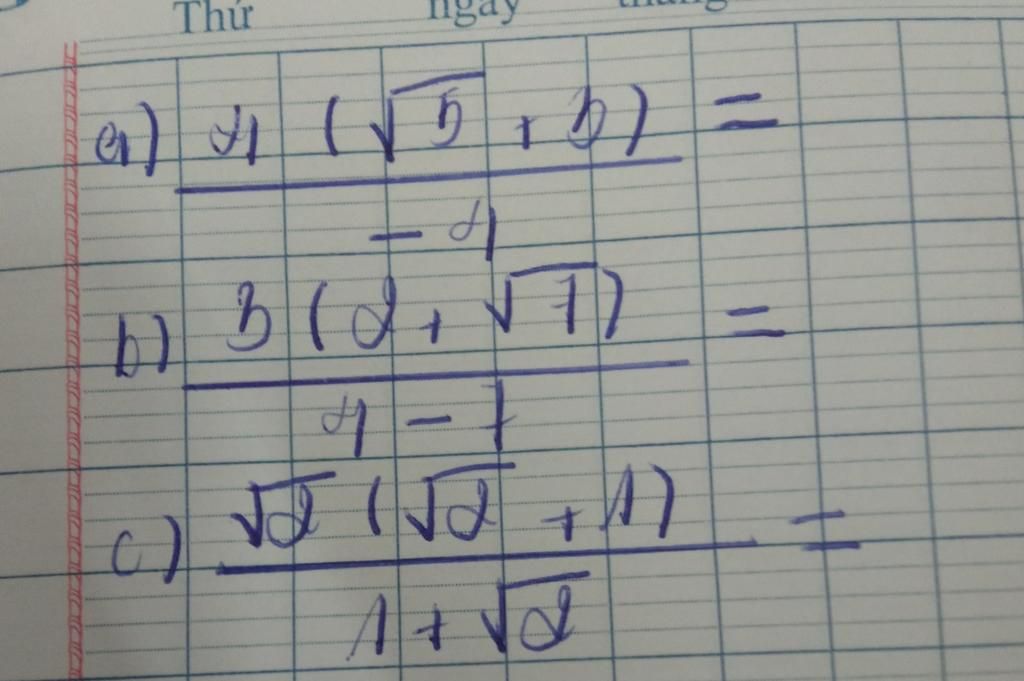 Thứ ngày tháng
a) 4 (√5 + 3) =
- 4
b) 3 (2 + √7) =
4 - 7
c) √2 (√2 + 1) =
1 + √2